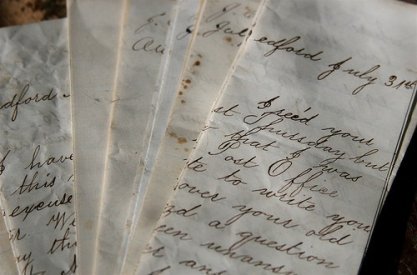 edford July 31st
I rec'd your
st Thursday but
that I was
t out Office
te to write you
over your old
d a question
een unans
r ans
dford
I have
this
excuse
my th